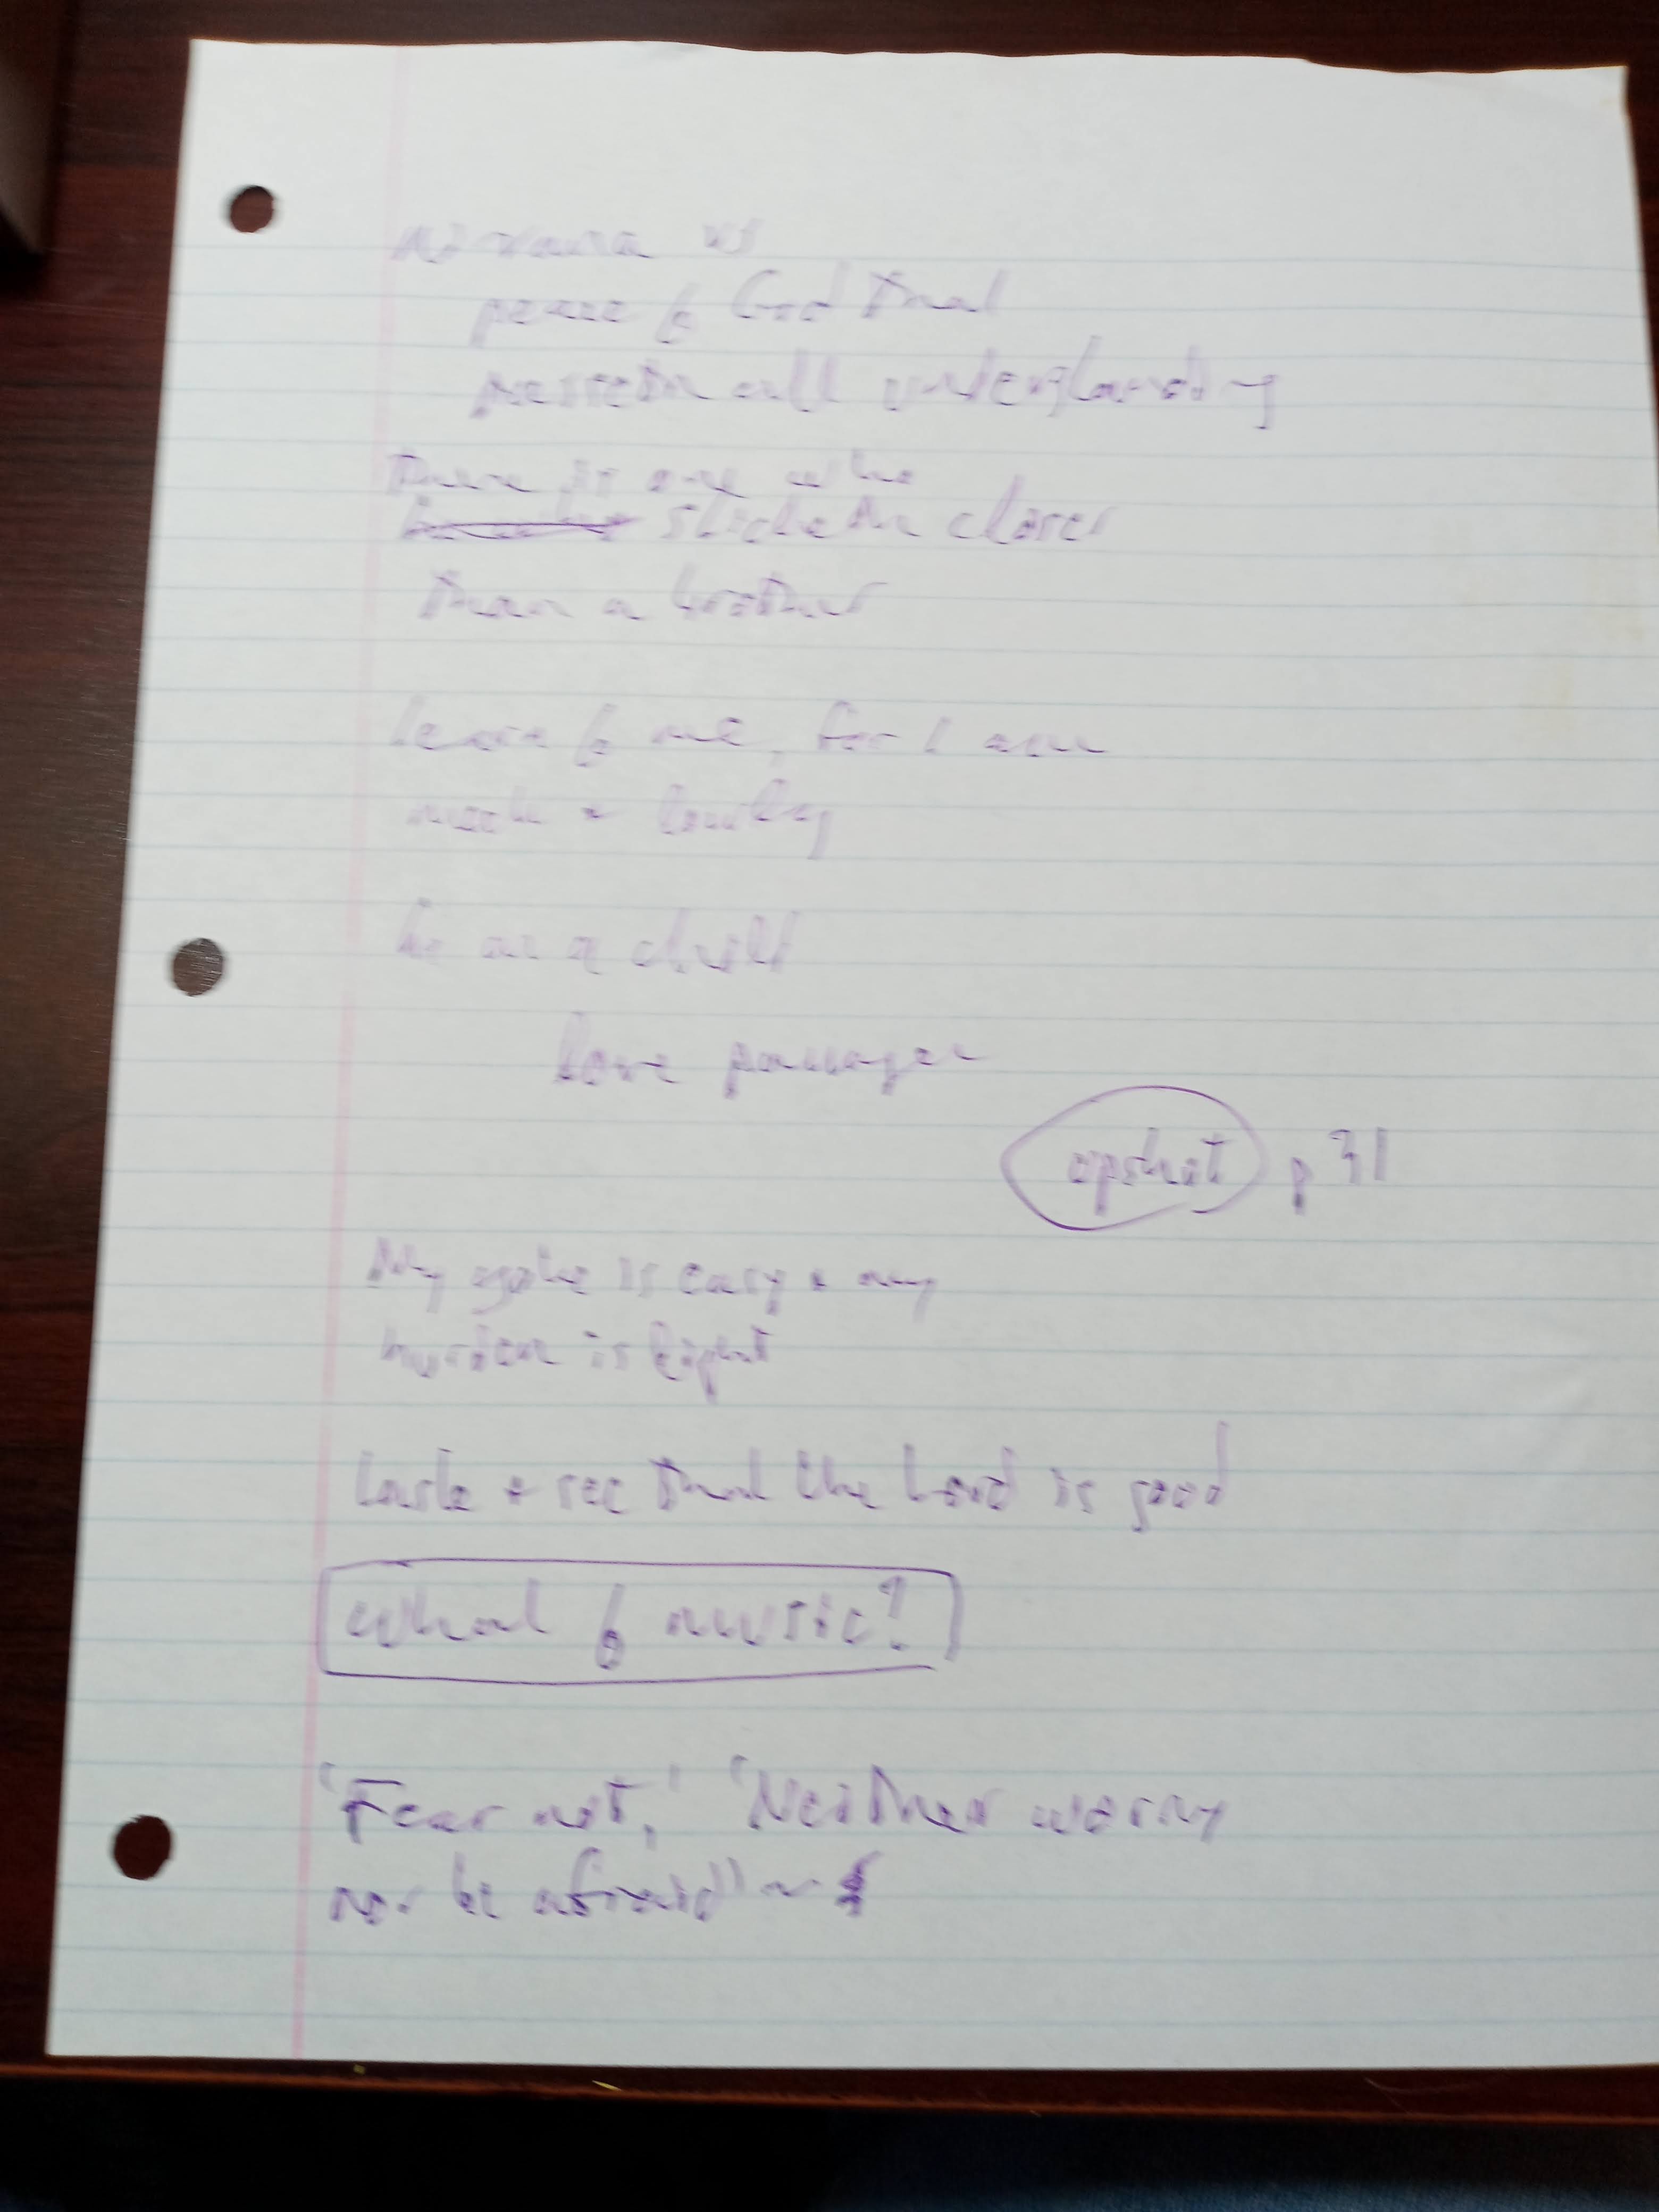 Nirvana vs
peace of God that
passeth all understanding
There is one who
sticketh closer
than a brother
learn of me, for I am
meek + lowly
be as a child
love passages
upshot p 31
My yoke is easy + my
burden is light
taste + see that the Lord is good
What of music?
'Fear not,' 'Neither worry
nor be afraid' ~